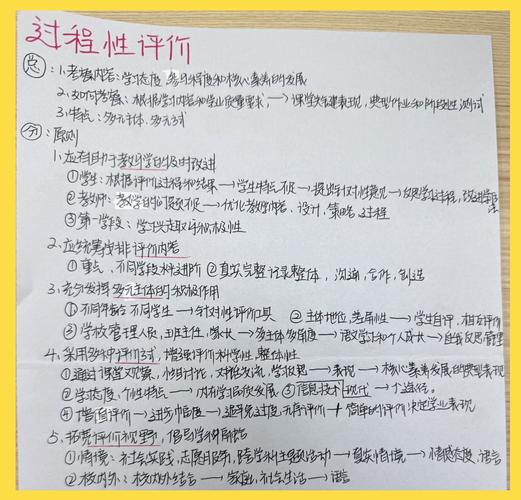 过程性评价
总：1.考察内容：学习态度、参与程度和核心素养的发展
2.如何考察：根据学习内容和学业质量要求，→课堂关键表现，典型作业和阶段性测试
3.特点：多元主体、多元方式
分：原则
1.应有助于教与学的及时改进
①学生：根据评价过程和结果→学生特点不足→提出针对性意见→反思学习过程，改进学习方法
②教师：教学的问题及不足→优化教学内容、设计、策略、过程
③第一学段：学习兴趣取评价积极性
2.应统筹安排评价内容
①重点、不同学段水平进阶 ②真实完整记录整体，沟通，合作，创造
3.充分发挥多元主体的积极作用
①不同年龄不同学生→针对性评价工具 ②主体地位，差异性→学生自评，相互评价
③学校管理人员，班主任，家长→多主体多角度→语文学习和个人成长→自我反思管理
4.采用多种评价方式，增强评价科学性，整体性
①通过课堂观察，小组讨论，对话交流，学习反思→表现→核心素养发展的典型表现
②学习态度、个性特点→内在学习品质发展 ③信息技术→现代→个性化。
④增值评价→进步幅度→避免过度，无序评价+简单的评价决定学业表现
5.拓宽评价视野，倡导学科融合
①情境：社会实践，志愿服务，跨学科主题活动→真实情境→情感态度、语言
②校内外：校内外结合→家庭，社会生活→语言